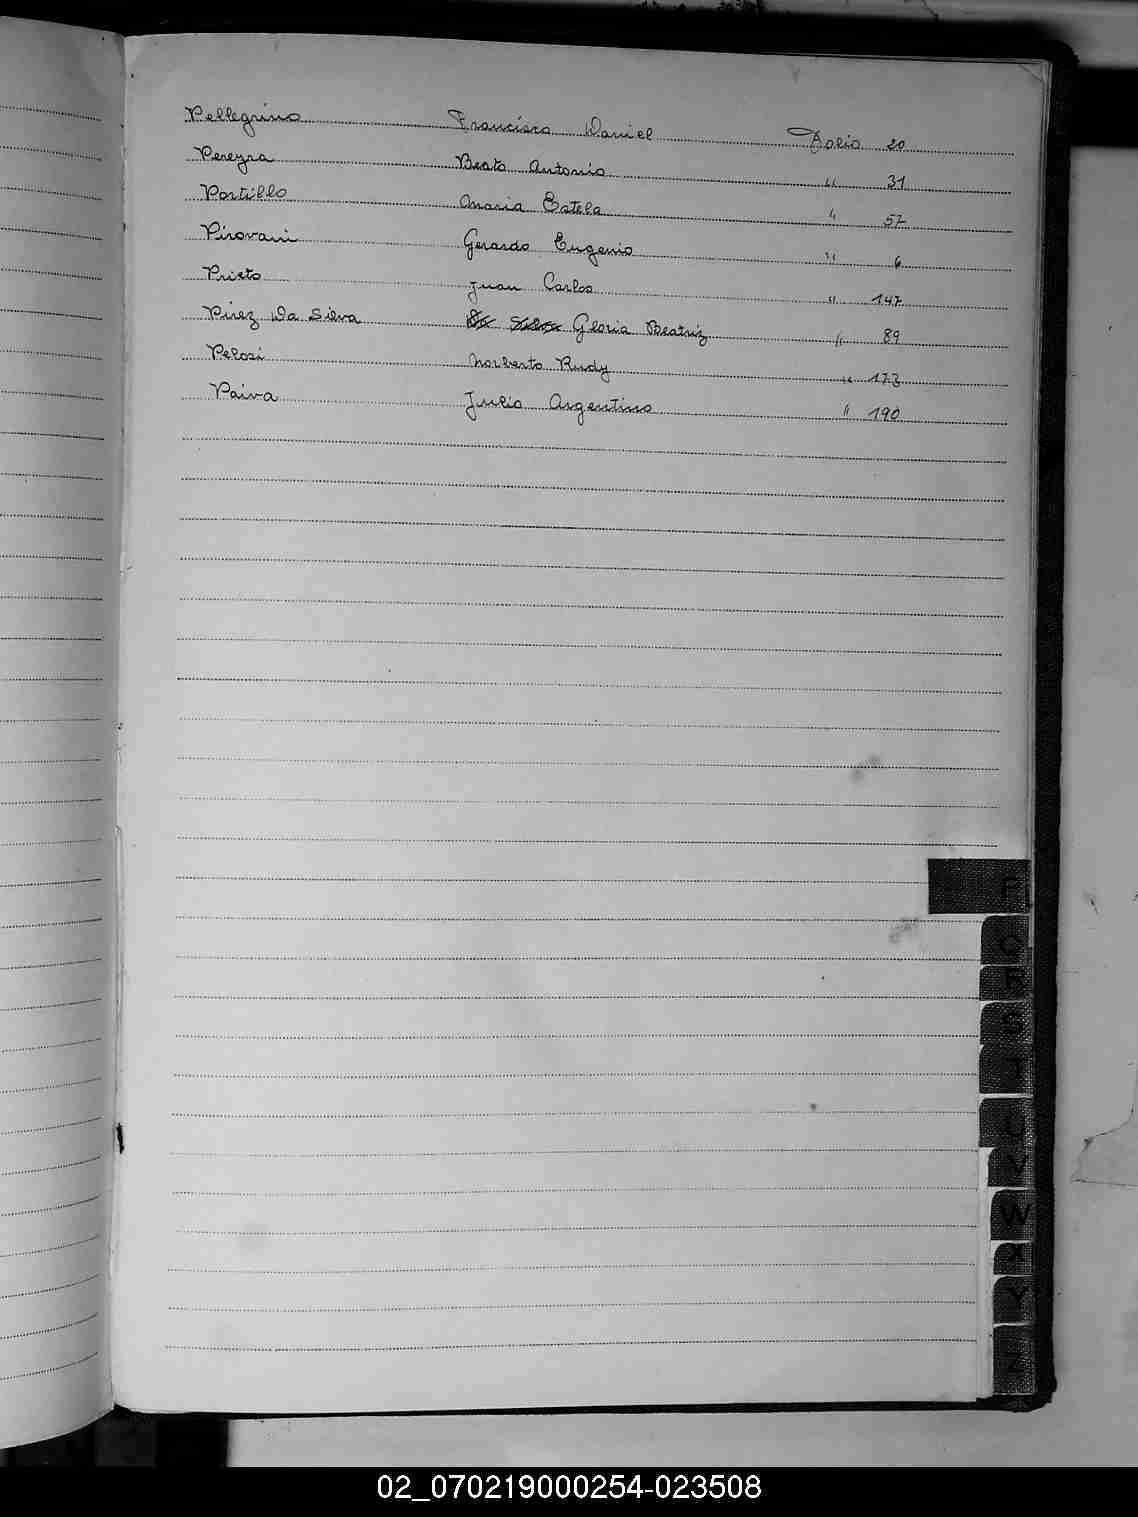 Pellegrino Francisco Daniel Folio 20
Pereyra Beato Antonio " 31
Portillo Maria Estela " 57
Pirovani Gerardo Eugenio " 6
Prieto Juan Carlos " 147
Pirez Da Silva Da Silva Gloria Beatriz " 89
Pelosi Norberto Rudy " 173
Paiva Julio Argentino " 190
P
Q
R
S
T
U
V
W
X
Y
Z
02_070219000254-023508